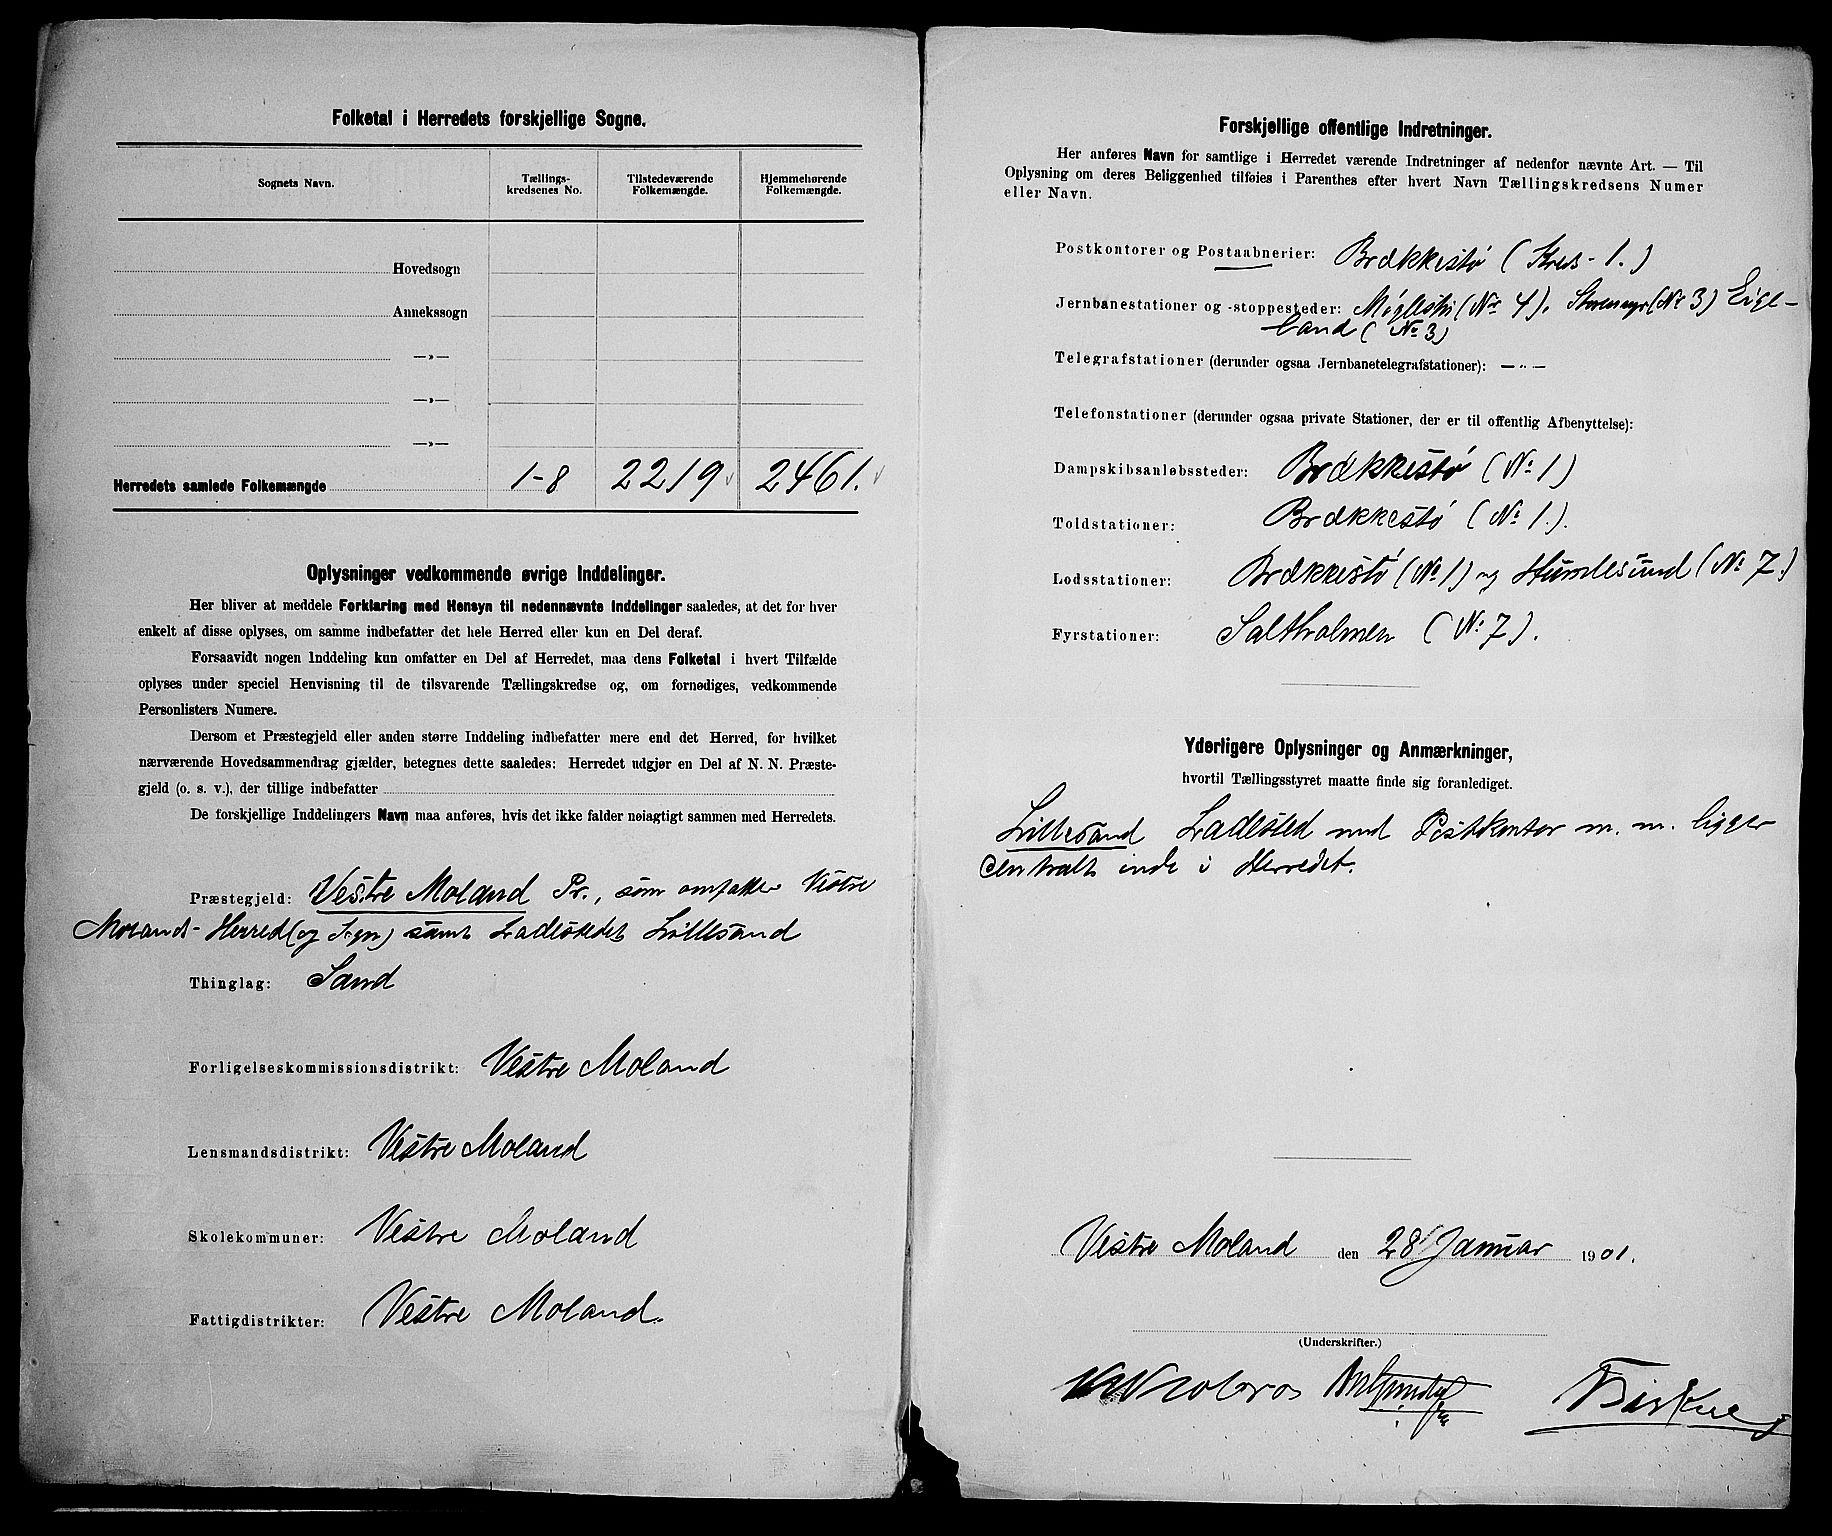 Folketal i Herredets forskjellige Sogne.
Sognets Navn.
Tællings-
kredsenes No.
Tilstedeværende
Folkemængde.
Hjemmehørende
Folkemængde.
Hovedsogn
Annekssogn
—»—
—»—
—»—
Herredets samlede Folkemængde 1-8 2219 2461.
Oplysninger vedkommende øvrige Inddelinger.
Her bliver at meddele Forklaring med Hensyn til nedennævnte Inddelinger saaledes, at det for hver
enkelt af disse oplyses, om samme indbefatter det hele Herred eller kun en Del deraf.
Forsaavidt nogen Inddeling kun omfatter en Del af Herredet, maa dens Folketal i hvert Tilfælde
oplyses under speciel Henvisning til de tilsvarende Tællingskredse og, om fornødiges, vedkommende
Personlisters Numere.
Dersom et Præstegjeld eller anden større Inddeling indbefatter mere end det Herred, for hvilket
nærværende Hovedsammendrag gjælder, betegnes dette saaledes: Herredet udgjør en Del af N. N. Præste-
gjeld (o. s. v.), der tillige indbefatter
De forskjellige Inddelingers Navn maa anføres, hvis det ikke falder nøiagtigt sammen med Herredets.
Præstegjeld: Vestre Moland Pr., som omfatter Vestre
Moland- Herred (og Sogn) samt Ladestedet Lillesand
Thinglag: Sand
Forligelseskommissionsdistrikt: Vestre Moland
Lensmandsdistrikt: Vestre Moland
Skolekommuner: Vestre Moland
Fattigdistrikter: Vestre Moland.
Forskjellige offentlige Indretninger.
Her anføres Navn for samtlige i Herredet værende Indretninger af nedenfor nævnte Art. — Til
Oplysning om deres Beliggenhed tilføies i Parenthes efter hvert Navn Tællingskredsens Numer
eller Navn.
Postkontorer og Postaabnerier: Brækkestø (Kreds 1.)
Jernbanestationer og -stoppesteder: Møglestu (No 4). Storemyr (No 3) Eige-
land (No 3)
Telegrafstationer (derunder ogsaa Jernbanetelegrafstationer): —"—
Telefonstationer (derunder ogsaa private Stationer, der er til offentlig Afbenyttelse):
Dampskibsanløbssteder: Brækkestø (No 1)
Toldstationer: Brækkestø (No 1.).
Lodsstationer: Brækkestø (No 1) og Humlesund (No 7.)
Fyrstationer: Saltholmen (No 7).
Yderligere Oplysninger og Anmærkninger,
hvortil Tællingsstyret maatte finde sig foranlediget.
Lillesand Ladested med Postkontor m. m. ligger
centralt inde i Herredet.
Vestre Moland den 28 Januar 1901.
(Underskrifter.)